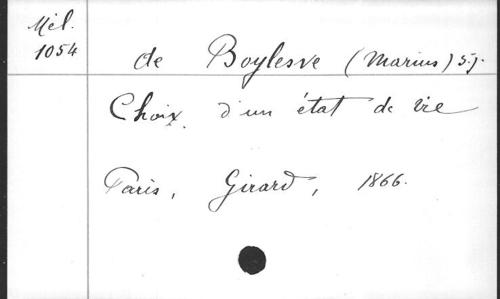 Mél.
1054
de Boylesve (Marius) S.J.
Choix d'un état de vie
Paris, Girard, 1866.